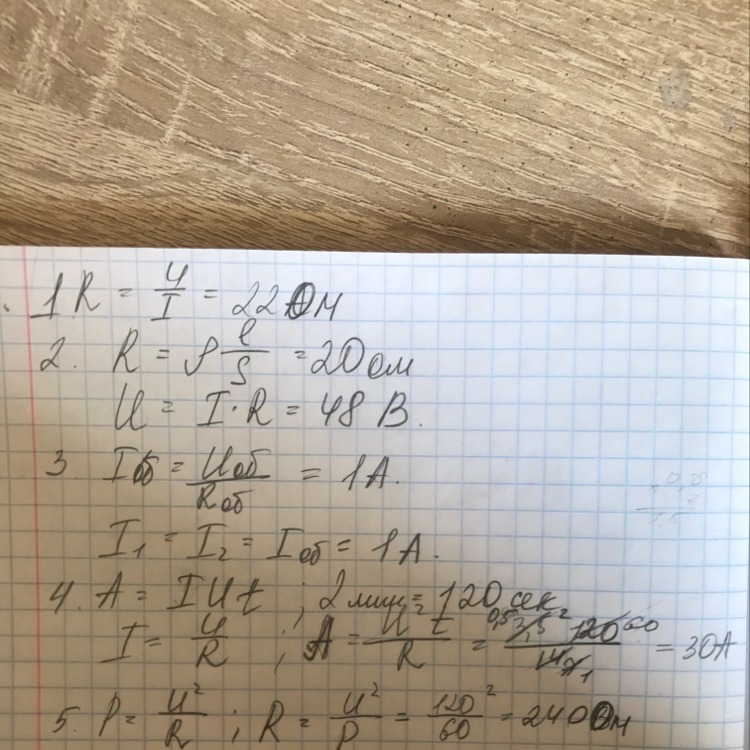 1 R = U/I = 22 Ом
2. R = ρ l/S = 20 Ом
U = I·R = 48 В.
3. Iоб = Uоб/Rоб = 1А.
I₁ = I₂ = Iоб = 1А.
4. A = IUt ; 2 мин = 120 сек
I = U/R ; A = U² t/R = = 30А
5. P = U²/R ; R = U²/P = 120²/60 = 240 Ом